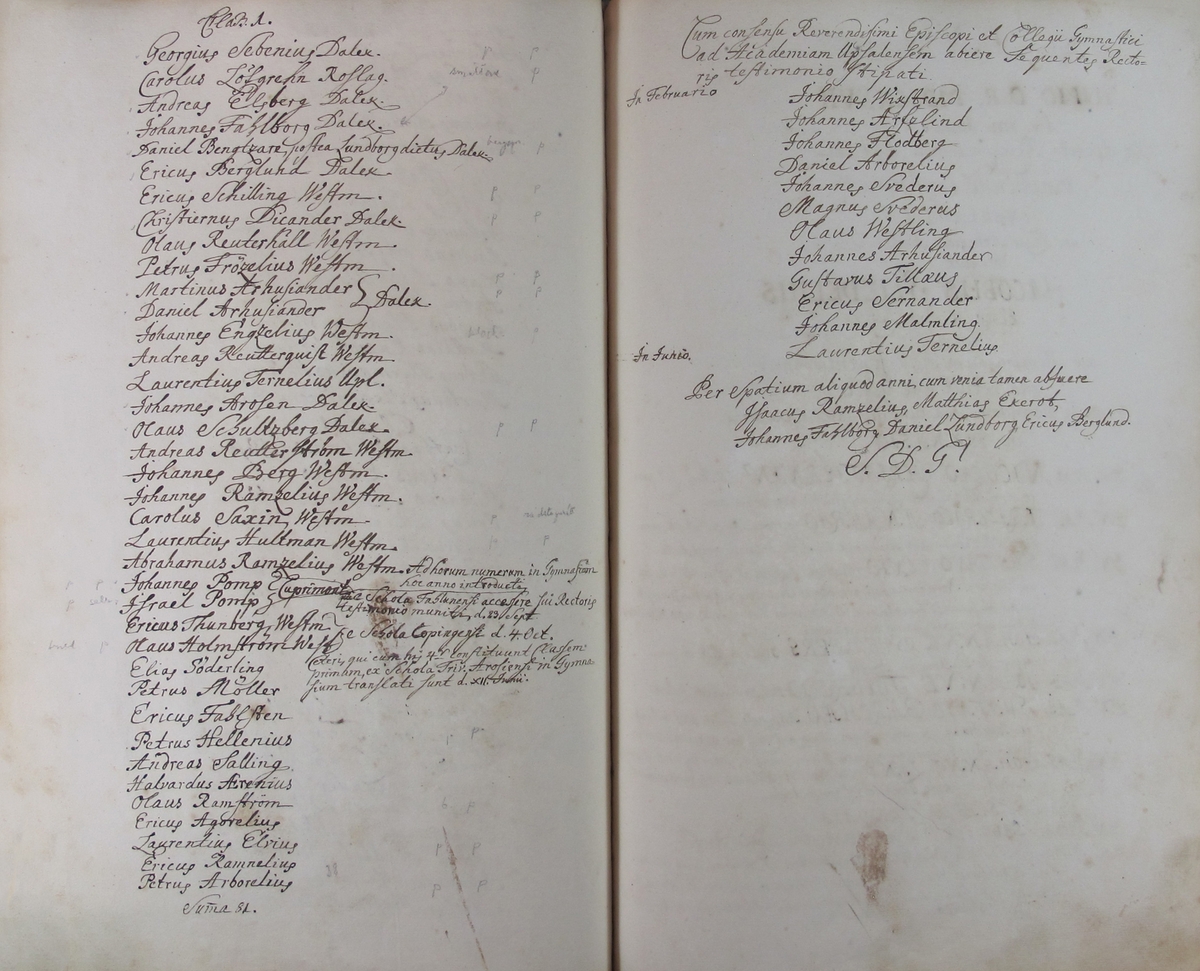 Class. 1.
Georgius Sebenius Dalek.
Carolus Löfgrehn Roslag.
Andreas Elfberg Dalek.
Johannes Fahlborg Dalek.
Daniel Bengtzare, postea Lundborg dictus Dalek.
Ericus Berglund Dalek
Ericus Schilling Westm.
Christiernus Dicander Dalek.
Olaus Reuterhäll Westm.
Petrus Frözelius Westm.
Martinus Arhusiander
Daniel Arhusiander } Dalek.
Johannes Engzelius Westm.
Andreas Reutterquist Westm
Laurentius Ternelius Upl.
Johannes Arosen Dalek.
Olaus Schultzberg Dalek.
Andreas Reutterström Westm.
Johannes Berg Westm.
Johannes Ramzelius Westm.
Carolus Saxin Westm.
Laurentius Hultman Westm.
Abrahamus Ramzelius Westm. Ad horum numerum in Gymnasium
hoc anno introducti
Johannes Pomp
Israel Pomp } Cuprimont.
Schola Fahlunensi accessere sui Rectoris
testimonio muniti d. 23 Sept.
Ericus Thunberg Westm
Olaus Holmström Westm } e Schola Copingensi d. 4 Oct.
Elias Söderling
Petrus Möller
Ceteri, qui cum hij 4r constituunt Classem
primam, ex Schola Triv. Arosiensi in Gymna-
sium translati sunt d. XII. Junii.
Ericus Fahlsten
Petrus Hellenius
Andreas Salling
Halvardus Ærenius
Olaus Ramström
Ericus Agorelius
Laurentius Elvius
Ericus Ramnelius
Petrus Arborelius
Suma 81.
Cum consensu Reverendissimi Episcopi et Collegii Gymnastici
ad Academiam Upsalensem abiere Sequentes Recto-
ris testimonio stipati.
In Februario
Johannes Wixstrand
Johannes Arfzlind
Johannes Flodberg
Daniel Arborelius
Johannes Svederus
Magnus Svederus
Olaus Westling
Johannes Arhusiander
Gustavus Tillæus
Ericus Sernander
Johannes Malmling
In Junio.
Laurentius Ternelius
Per Spatium aliquod anni, cum venia tamen abfuere
Isaacus Ramzelius, Matthias Exerot,
Johannes Fahlborg Daniel Lundborg Ericus Berglund.
S. D. G!